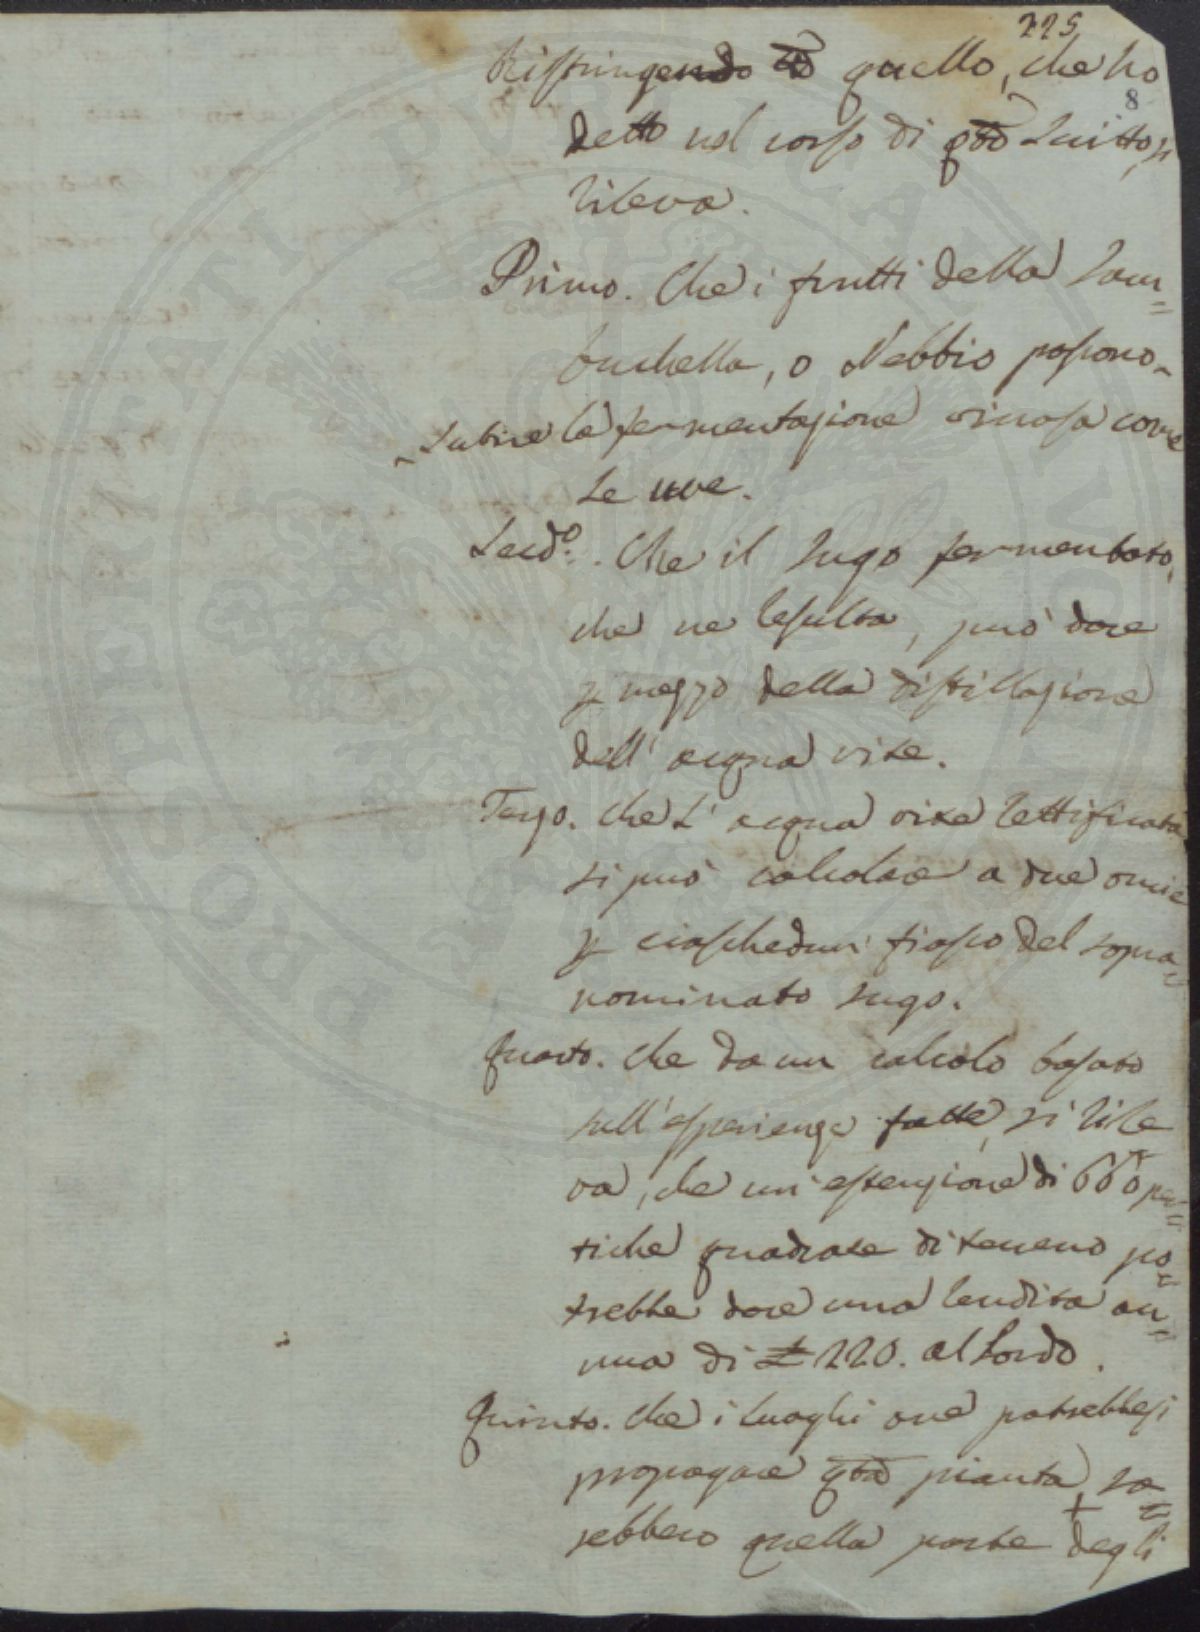 225
Ristringendo quello, che ho
8
detto nel corso di qto scritto, si
rileva.
Primo. Che i frutti della Sam=
buchella, o Nebbio possono
subire la fermentazione vinosa come
le uve.
Secdo. Che il sugo fermentato,
che ne resulta, può dare
p mezzo della distillazione
dell' acqua vite.
Terzo. che l' acqua vite rettificata
si può calcolare a due oncie
p ciaschedun fiasco del sopra=
nominato sugo.
Quarto. Che da un calcolo basato
sull'esperienze fatte, si rile
va, che un'estenzione di 660 per=
tiche quadrate di terreno po=
trebbe dare una rendita an=
nua di £ 220. al Lordo.
Quinto. Che i luoghi ove potrebbesi
propagare qta pianta, sa=
rebbero quella parte degli
PROSPERITATI PUBLICAE